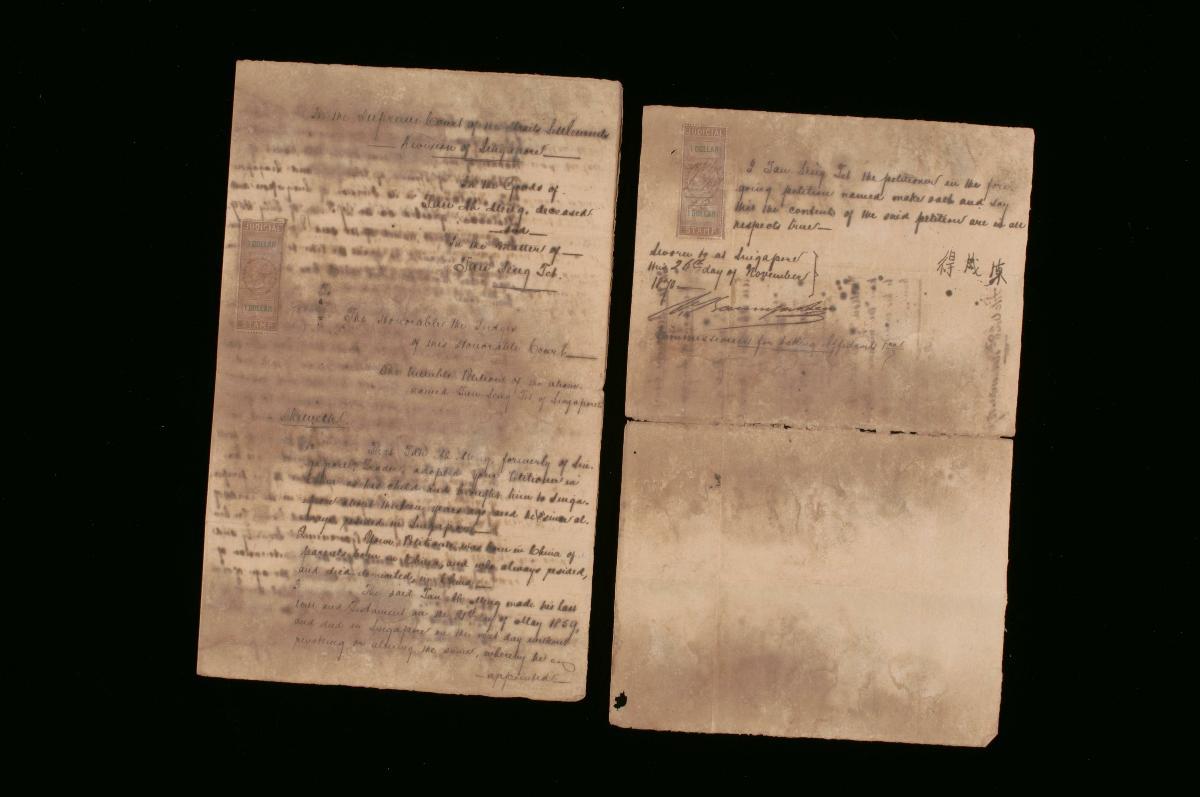 In the Supreme Court of the Straits Settlements
Division of Singapore
In the Goods of
Tan Ah Ming, deceased
and
In the Matter of
Tan Seng Teh.
JUDICIAL
1 DOLLAR
1 DOLLAR
STAMP
The Honorable the Judges
of this Honorable Court
The Humble Petition of the above
named Tan Seng Teh of Singapore
Sheweth
That Tan Ah Ming, formerly of Sin-
gapore, Trader, adopted your Petitioner in
as his child and brought him to Singa-
pore about thirteen years ago and he since al-
ways resided in Singapore
Your Petitioner was born in China of
parents born in China, and who always resided,
and died domiciled, in China
The said Tan Ah Ming made his last
Will and Testament on the day of May 1859,
and died in Singapore on the next day without
revoking or altering the same, whereby he
appointed
JUDICIAL
1 DOLLAR
1 DOLLAR
STAMP
I Tan Seng Teh the petitioner in the fore-
going petition named make oath and say
that the contents of the said petition are in all
respects true
Sworn to at Singapore
this 26th day of November
18
得成陳
Commissioner for taking Affidavits